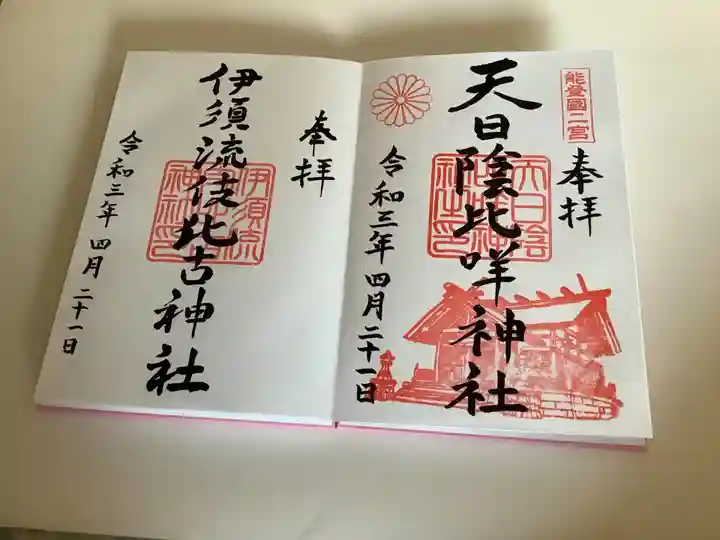 能登國二宮
奉拝
天日陰比咩神社
天日陰
令和三年四月二十一日
奉拝
伊須流伎比古神社
伊須流
神社印
令和三年四月二十一日